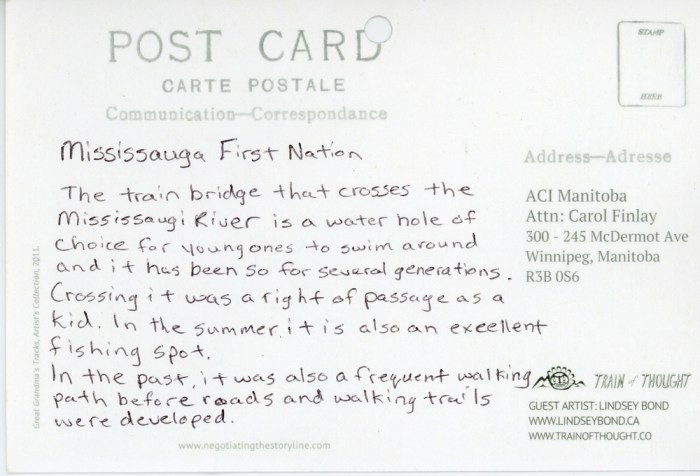 POST CARD
CARTE POSTALE
Communication—Correspondance
STAMP
HERE
Mississauga First Nation
The train bridge that crosses the
Mississaugi River is a water hole of
choice for young ones to swim around
and it has been so for several generations.
Crossing it was a right of passage as a
kid. In the summer, it is also an excellent
fishing spot.
In the past, it was also a frequent walking
path before roads and walking trails
were developed.
Address—Adresse
ACI Manitoba
Attn: Carol Finlay
300 - 245 McDermot Ave
Winnipeg, Manitoba
R3B 0S6
TRAIN of THOUGHT
GUEST ARTIST: LINDSEY BOND
WWW.LINDSEYBOND.CA
WWW.TRAINOFTHOUGHT.CO
www.negotiatingthestoryline.com
Great Grandma's Tracks, Artist's Collection, 2011.